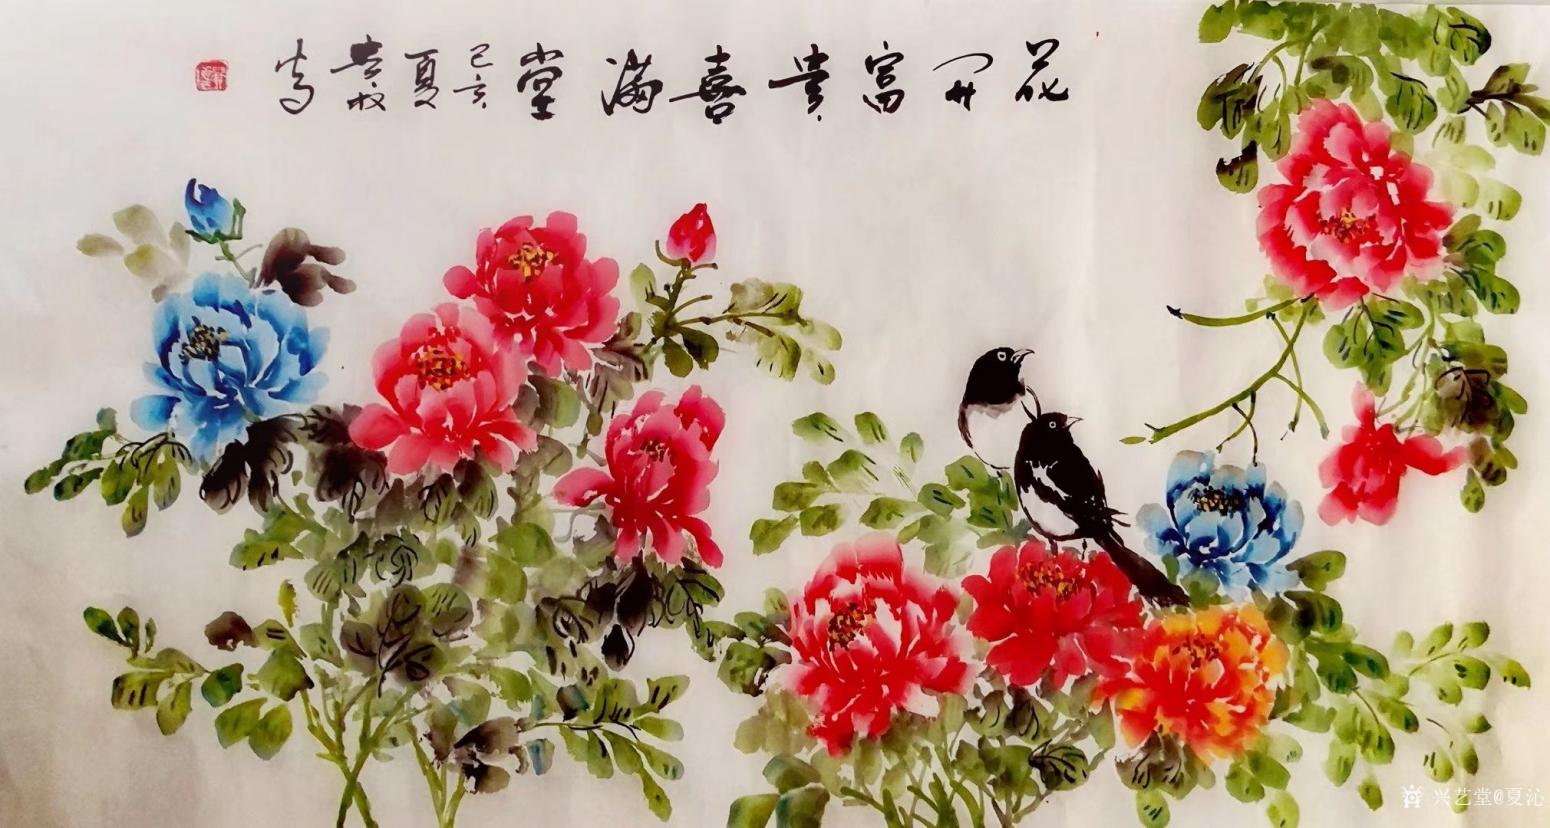 花开富貴喜满堂
己亥夏
兴艺堂@夏沁